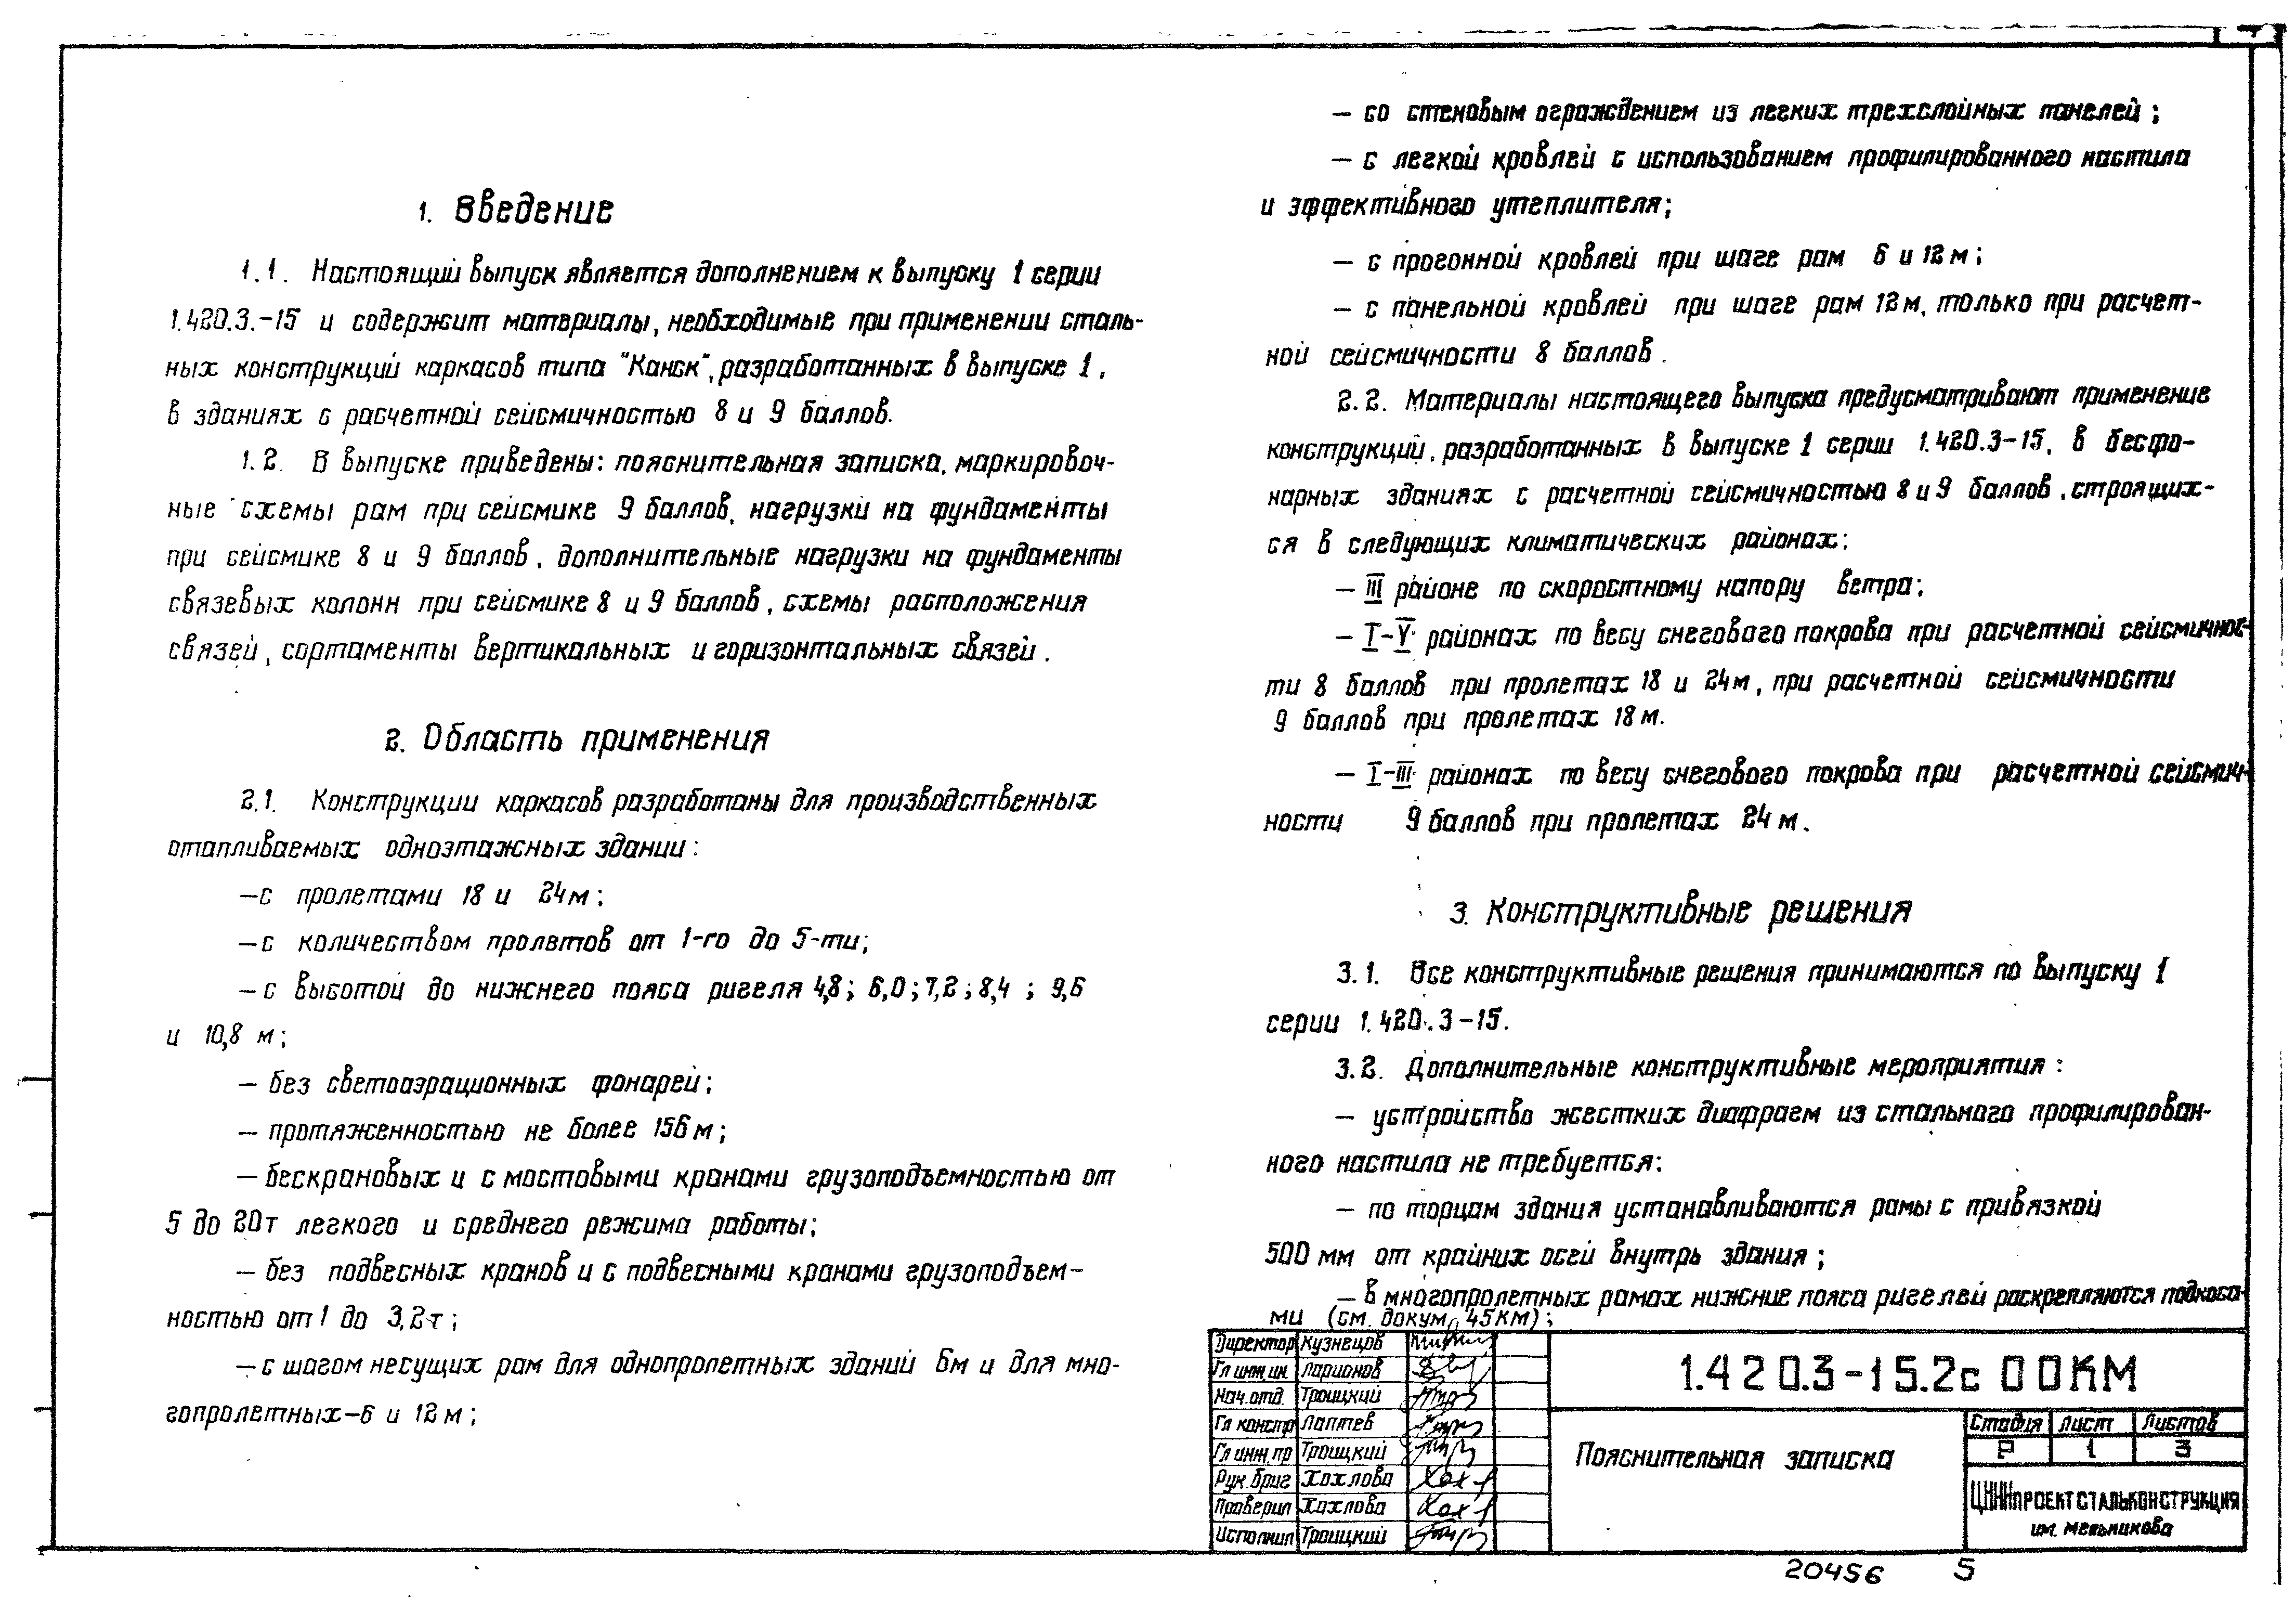 1. Введение
1.1. Настоящий выпуск является дополнением к выпуску 1 серии
1.420.3.-15 и содержит материалы, необходимые при применении сталь-
ных конструкций каркасов типа "Канск", разработанных в выпуске 1,
в зданиях с расчетной сейсмичностью 8 и 9 баллов.
1.2. В выпуске приведены: пояснительная записка, маркировоч-
ные схемы рам при сейсмике 9 баллов, нагрузки на фундаменты
при сейсмике 8 и 9 баллов, дополнительные нагрузки на фундаменты
связевых колонн при сейсмике 8 и 9 баллов, схемы расположения
связей, сортаменты вертикальных и горизонтальных связей.
2. Область применения
2.1. Конструкции каркасов разработаны для производственных
отапливаемых одноэтажных здании:
— с пролетами 18 и 24 м;
— с количеством пролетов от 1-го до 5-ти;
— с высотой до нижнего пояса ригеля 4,8; 6,0; 7,2; 8,4; 9,6
и 10,8 м;
— без светоаэрационных фонарей;
— протяженностью не более 156 м;
— бескрановых и с мостовыми кранами грузоподъемностью от
5 до 20т легкого и среднего режима работы;
— без подвесных кранов и с подвесными кранами грузоподъем-
ностью от 1 до 3,2т;
— с шагом несущих рам для однопролетных зданий 6м и для мно-
гопролетных-6 и 12 м;
— со стеновым ограждением из легких трехслойных панелей;
— с легкой кровлей с использованием профилированного настила
и эффективного утеплителя;
— с прогонной кровлей при шаге рам 6 и 12 м;
— с панельной кровлей при шаге рам 12 м, только при расчет-
ной сейсмичности 8 баллов.
2.2. Материалы настоящего выпуска предусматривают применение
конструкций, разработанных в выпуске 1 серии 1.420.3-15, в бесфо-
нарных зданиях с расчетной сейсмичностью 8 и 9 баллов, строящих-
ся в следующих климатических районах:
— III районе по скоростному напору ветра;
— I-V районах по весу снегового покрова при расчетной сейсмичнос-
ти 8 баллов при пролетах 18 и 24 м, при расчетной сейсмичности
9 баллов при пролетах 18 м.
— I-III районах по весу снегового покрова при расчетной сейсмич-
ности 9 баллов при пролетах 24 м.
3. Конструктивные решения
3.1. Все конструктивные решения принимаются по выпуску 1
серии 1.420.3-15.
3.2. Дополнительные конструктивные мероприятия:
— устройство жестких диафрагм из стального профилирован-
ного настила не требуется:
— по торцам здания устанавливаются рамы с привязкой
500 мм от крайних осей внутрь здания;
— в многопролетных рамах нижние пояса ригелей раскрепляются подкоса-
ми (см. докум. 45КМ);
Директор Кузнецов
Гл инж.ин. Ларионов
Нач.отд. Троицкий
Гл констр Лаптев
Гл инж.пр Троицкий
Рук.бриг Хохлова
Проверил Хохлова
Исполнил Троицкий
1.420.3-15.2с 00КМ
Пояснительная записка
Стадия Лист Листов
Р 1 3
ЦНИИПРОЕКТСТАЛЬКОНСТРУКЦИЯ
им. Мельникова
20456 5